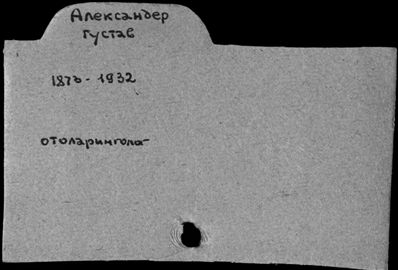 Александер
Густав
1873-1932
отоларинголо-